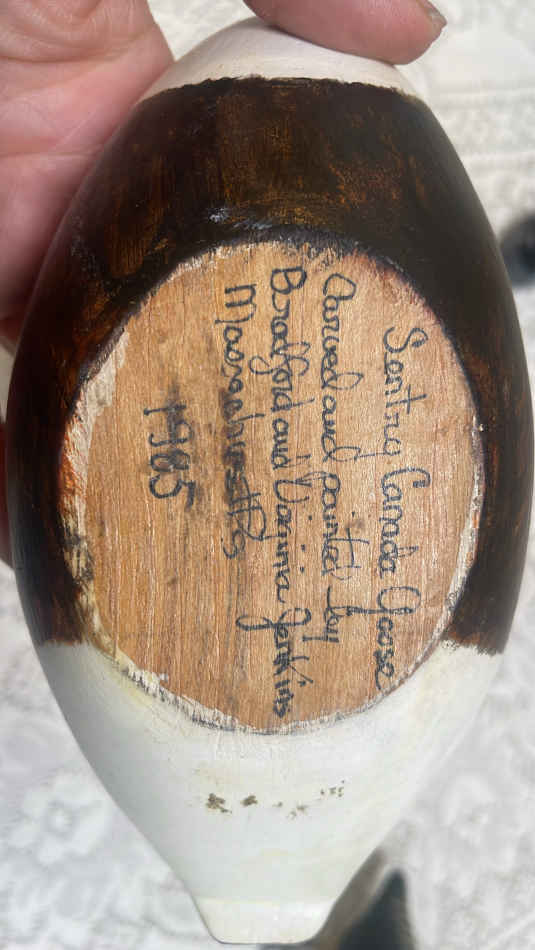 Sentry Canada Goose
Carved and painted by
Bradford and Virginia Jenkins
Massachusetts
1985